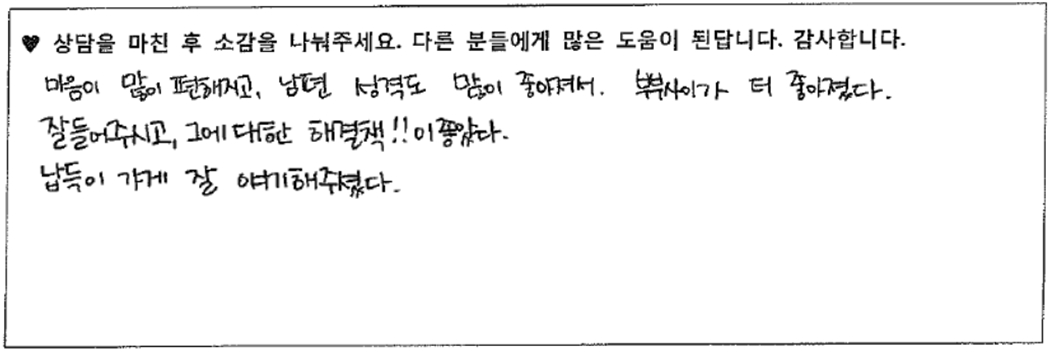 ♥ 상담을 마친 후 소감을 나눠주세요. 다른 분들에게 많은 도움이 된답니다. 감사합니다.
마음이 많이 편해지고, 남편 성격도 많이 좋아져서. 부부사이가 더 좋아졌다.
잘들어주시고, 그에 대한 해결책!!이 좋았다.
납득이 가게 잘 얘기해주셨다.